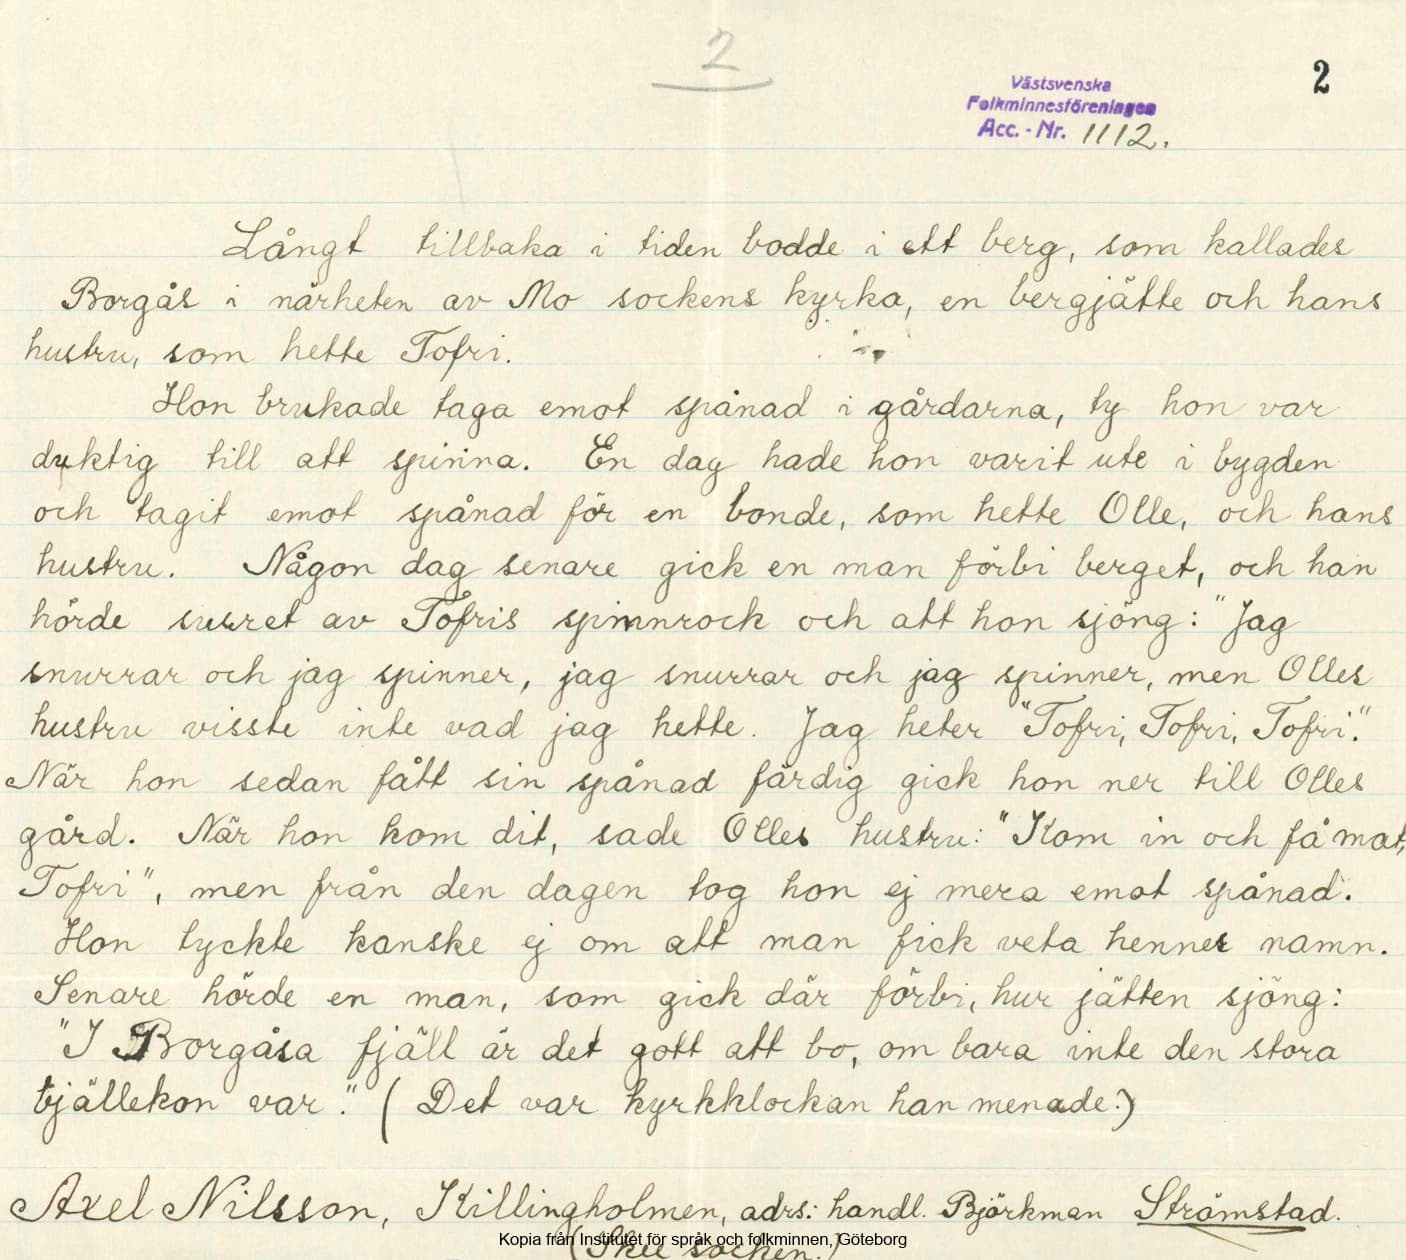 2
2
Västsvenska
Folkminnesföreningen
Acc.-Nr. 1112.
Långt tillbaka i tiden bodde i ett berg, som kallades
Borgås i närheten av Mo sockens kyrka, en bergjätte och hans
hustru, som hette Tofri.
Hon brukade taga emot spånad i gårdarna, ty hon var
duktig till att spinna. En dag hade hon varit ute i bygden
och tagit emot spånad för en bonde, som hette Olle, och hans
hustru. Någon dag senare gick en man förbi berget, och han
hörde surret av Tofris spinnrock och att hon sjöng: "Jag
snurrar och jag spinner, jag snurrar och jag spinner, men Olles
hustru visste inte vad jag hette. Jag heter "Tofri, Tofri, Tofri."
När hon sedan fått sin spånad färdig gick hon ner till Olles
gård. När hon kom dit, sade Olles hustru: "Kom in och få mat,
Tofri", men från den dagen tog hon ej mera emot spånad.
Hon tyckte kanske ej om att man fick veta hennes namn.
Senare hörde en man, som gick där förbi, hur jätten sjöng:
"I Borgåsa fjäll är det gott att bo, om bara inte den stora
bjällekon var." (Det var kyrkklockan han menade.)
Axel Nilsson, Killingholmen, adrs.: handl. Björkman Strömstad.
(Skee socken.)
Kopia från Institutet för språk och folkminnen, Göteborg